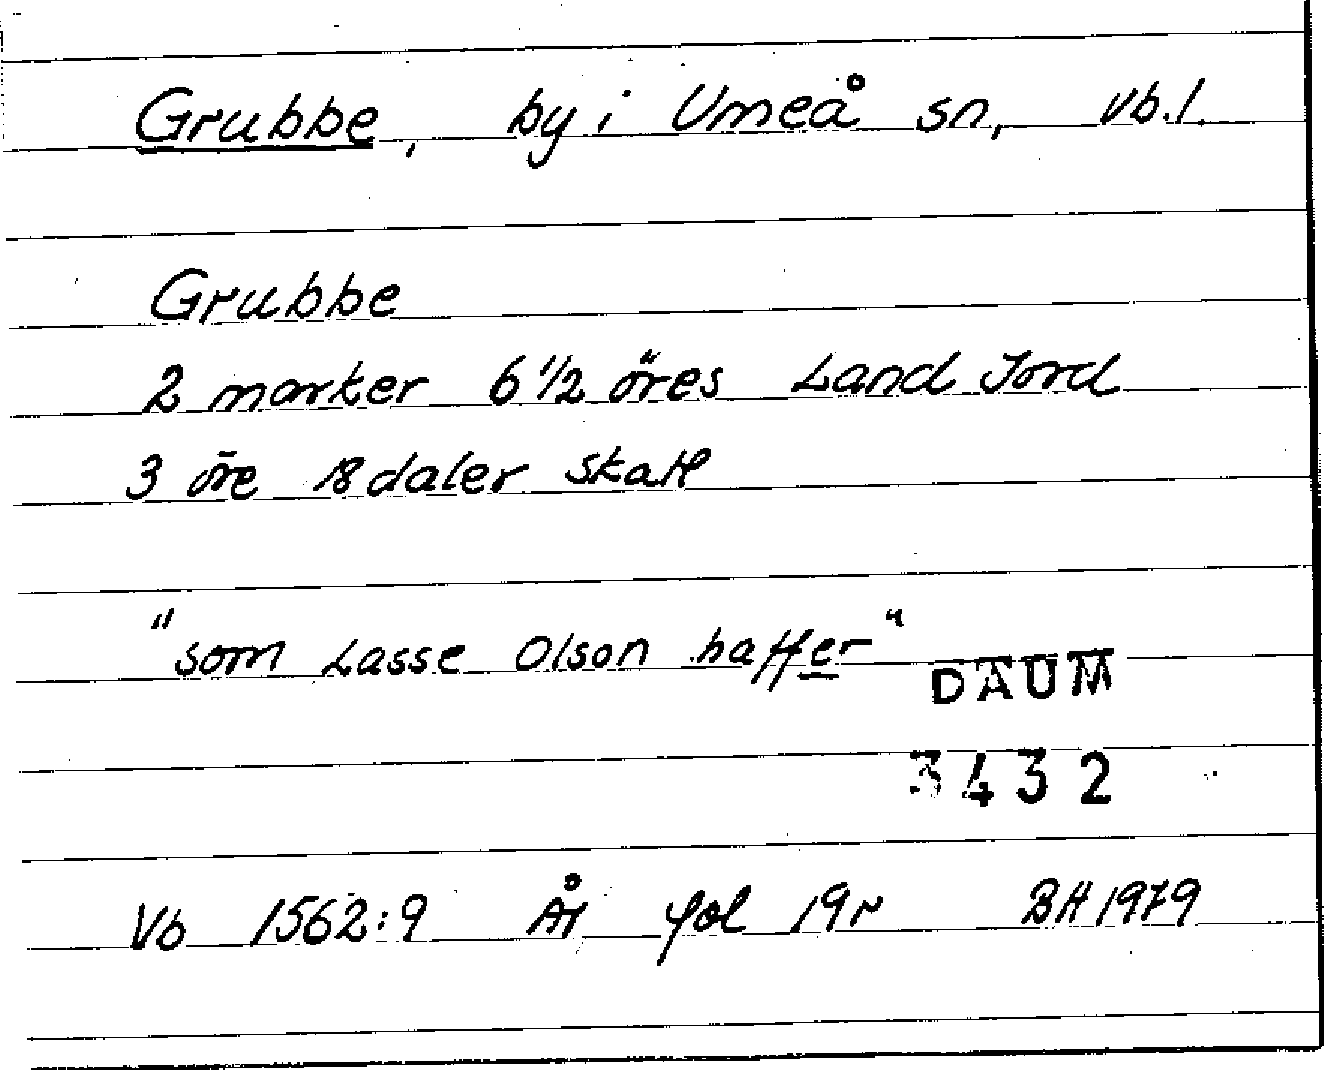 Grubbe, by i Umeå sn, Vb.l.
Grubbe
2 marker 6 1/2 öres Land Jord
3 öre 18 daler skatt
"som Lasse Olson haffer"
DAUM
3432
Vb 1562:9 År fol 19r BH 1979